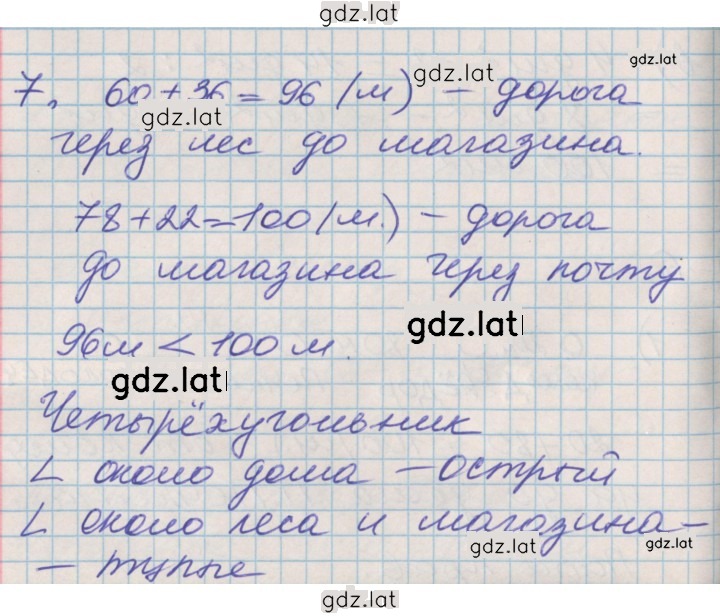 gdz.lat
7. 60 + 36 = 96 (м) - дорога
gdz.lat
gdz.lat
gdz.lat
через лес до магазина.
78+22=100(м.) - дорога
до магазина через почту
gdz.lat
96м < 100 м.
gdz.lat
Четырёхугольник
∟ около дома - острый
∟ около леса и магазина-
gdz.lat
gdz.lat
- тупые
gdz.lat